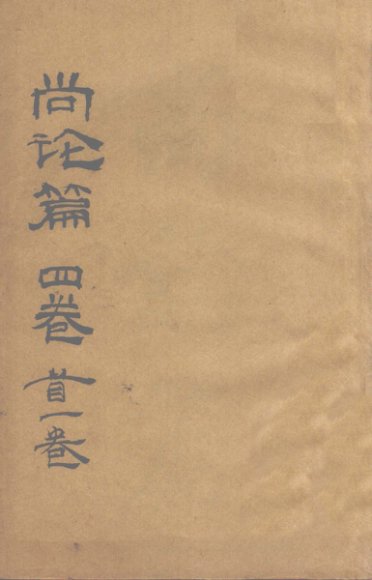 尚论篇 四卷 首一卷